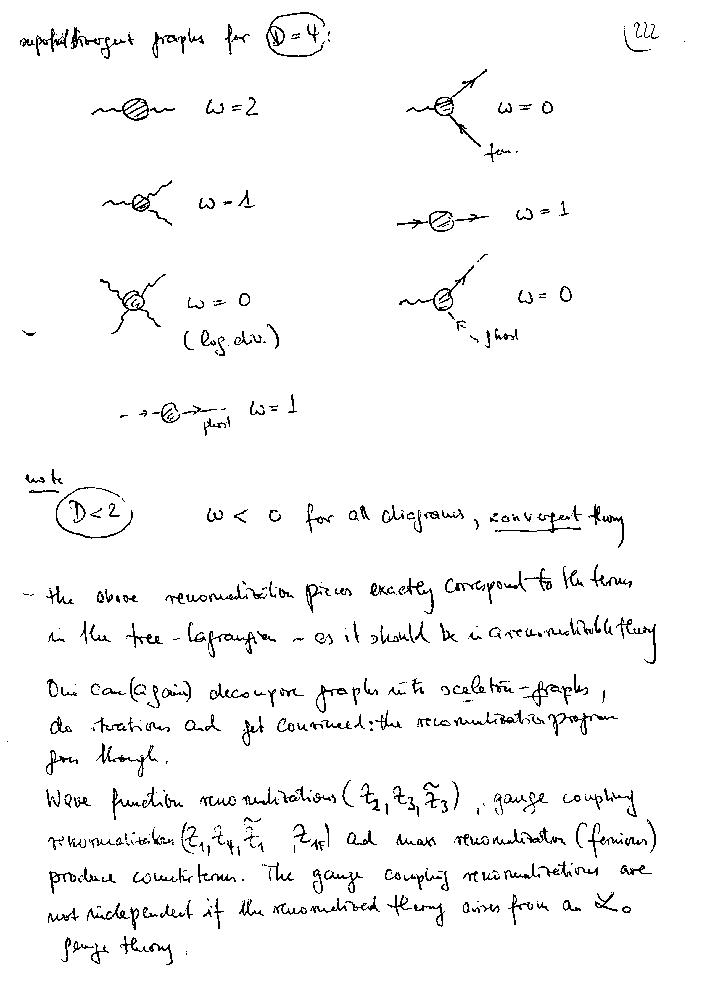 superfic. divergent graphs for D = 4 :
222
ω = 2
ω = 0
fer.
ω = 1
ω = 1
ω = 0
(log. div.)
ω = 0
ghost
ghost ω = 1
note
D < 2 ω < 0 for all diagrams, convergent theory
- the above renormalization pieces exactly correspond to the terms
in the tree - Lagrangian - as it should be in a renormalizable theory
One can (again) decompose graphs into sceleton-graphs,
do iterations and get convinced: the renormalization program
goes through.
Wave function renormalizations (Z₂, Z₃, Z̃₃), gauge coupling
renormalization (Z₁, Z₄, Z̃₁, Z₁F) and mass renormalization (fermions)
produce counterterms. The gauge coupling renormalizations are
not independent if the renormalized theory arises from an ℒ₀
gauge theory.